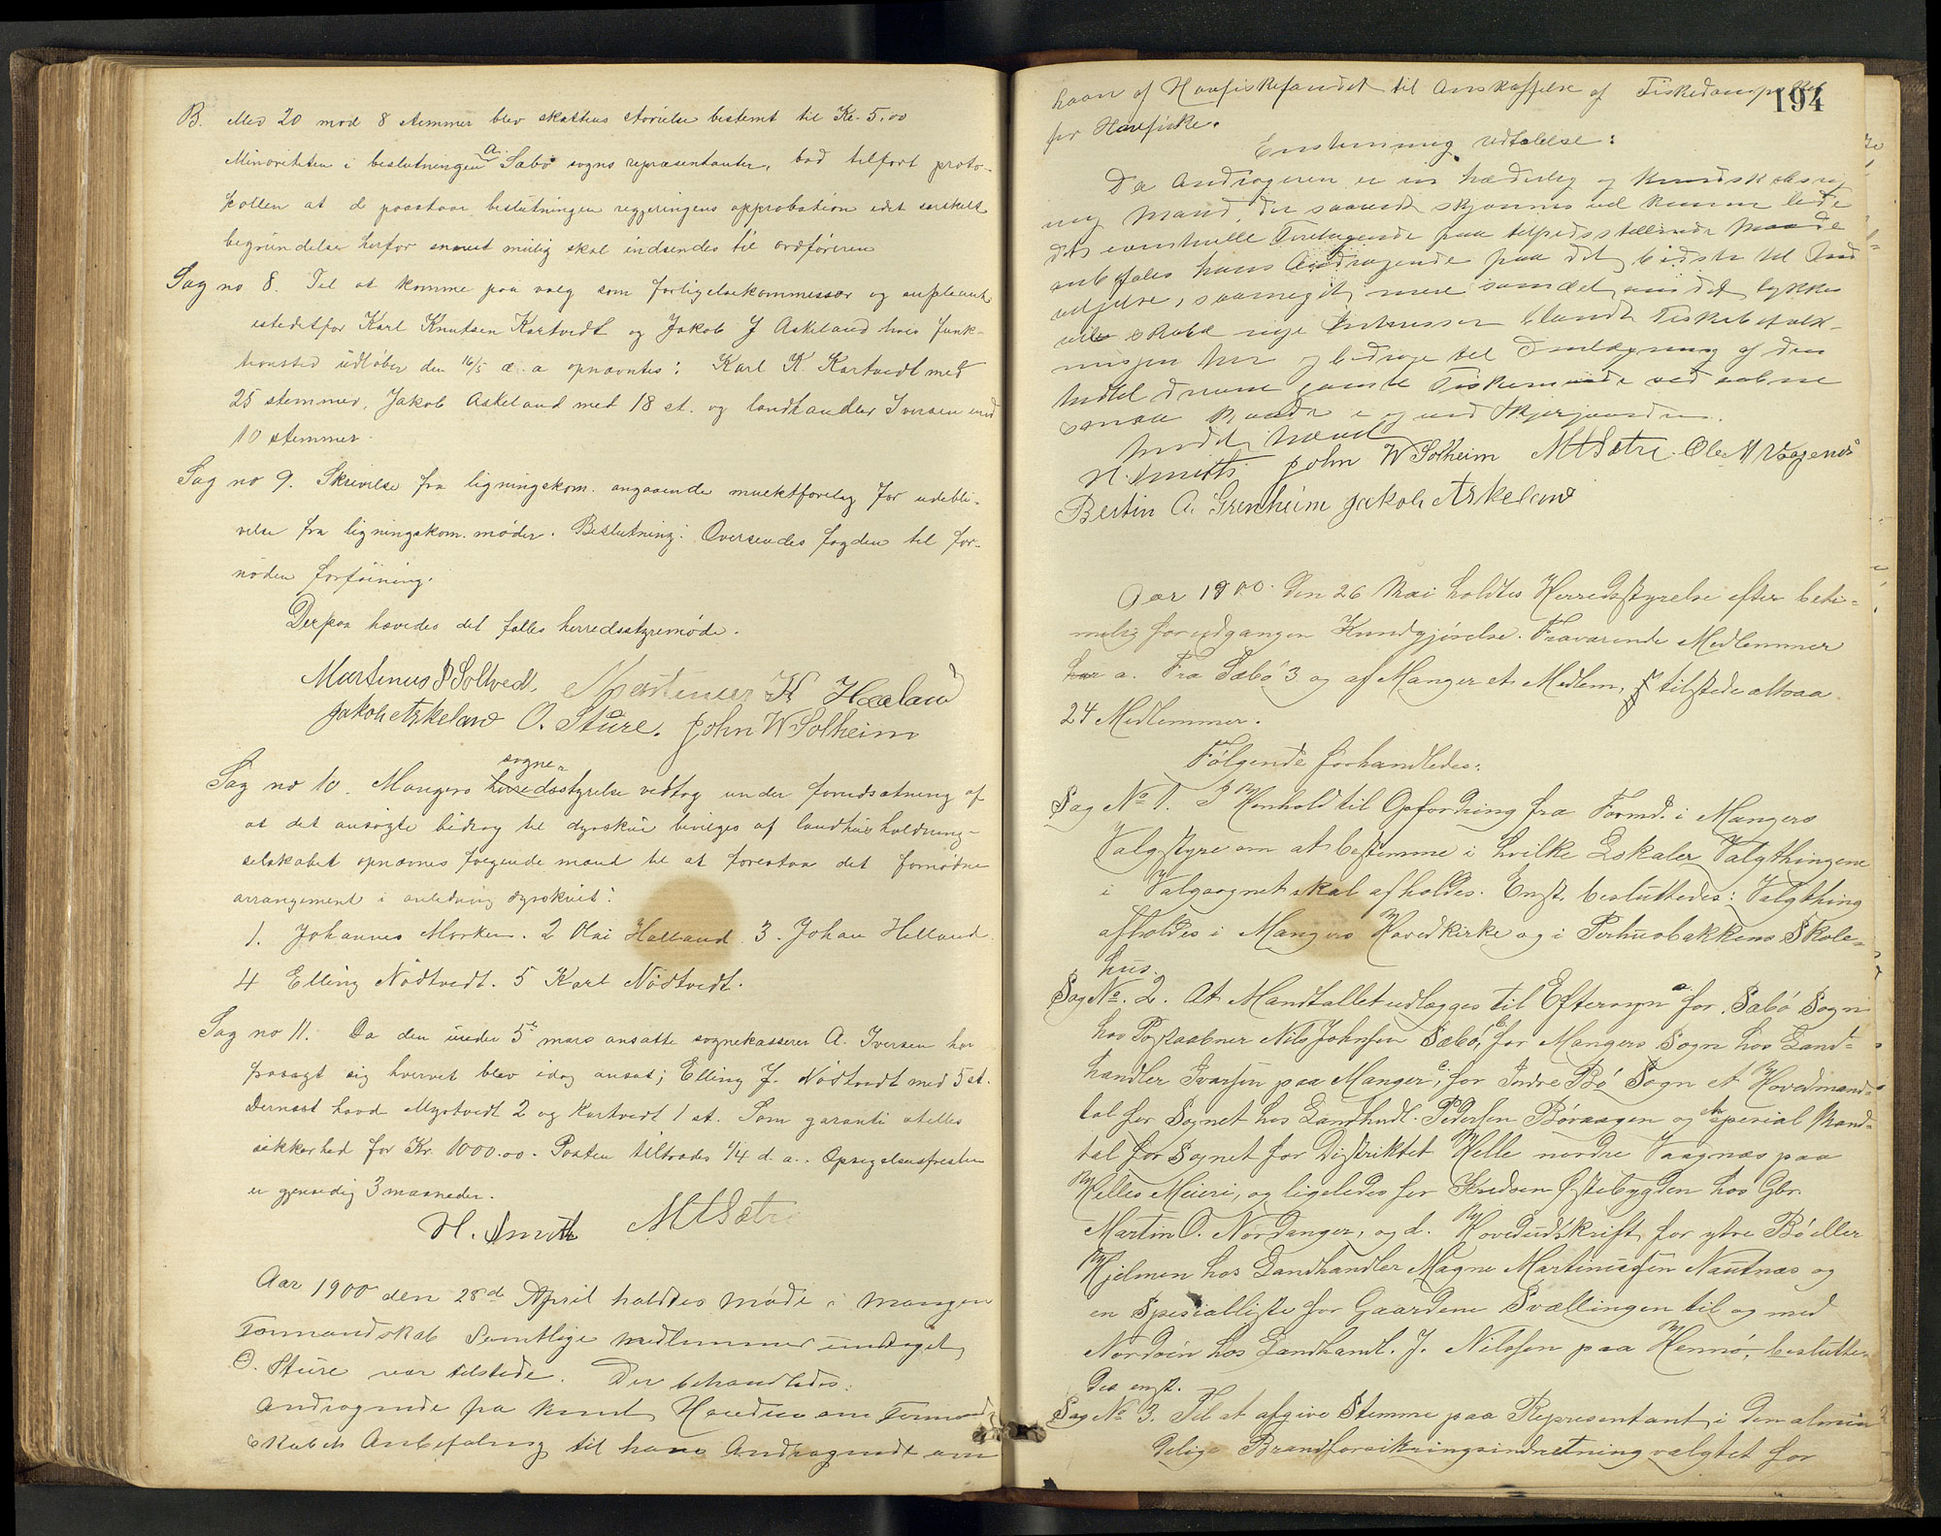 B. Med 20 mod 8 stemmer blev skattens størrelse bestemt til Kr. 5,00
Minoriteten i beslutningen a. Sæbø sogns repræsentanter, bad tilført proto-
kollen at de paastaar beslutningen regjeringens approbation idet særskilt
begrundelse herfor snarest mulig skal indsendes til ordføreren
Sag no 8. Til at komme paa valg som forligelseskommissær og suppleant
istedetfor Karl Knutsen Kartvedt og Jakob J Askeland hvis funk-
tionstid udløber den 16/5 d. a opnævntes: Karl K. Kartvedt med
25 stemmer, Jakob Askeland med 18 st. og landhandler Iversen med
10 stemmer.
Sag no 9. Skrivelse fra ligningskom. angaaende mulktforelæg for udebli-
velse fra ligningskom. møder. Beslutning: Oversendes fogden til for-
nøden forføining.
Derpaa hævedes det fælles herredsstyremøde.
Martinus P Soltved. Mortinus H Haaland
Jakob Askeland O. Sture. John W Solheim
sogne-
Sag no 10. Mangers herredsstyrelse vedtog under forudsætning af
at det ansøgte bidrag til dyrskue bevilges af landhusholdning-
selskabet opnævnes følgende mænd til at forestaa det fornødne
arrangement i anledning dyrskuet:
1. Johannes Morken. 2 Olai Halland. 3. Johan Helland
4 Elling Nødtvedt. 5 Karl Nødtvedt.
Sag no 11. Da den under 5te mars ansatte sognekasserer A. Iversen har
frasagt sig hvervet blev idag ansat; Elling J. Nødtvedt med 5 st.
Dernæst havd Myrtvedt 2 og Kartvedt 1 st. Som garanti stilles
sikkerhed for Kr. 1000.00. Posten tiltrædes 1/4 d. a.. Opsigelsesfristen
er gjensidig 3 maaneder.
H. Smith M H Sætre
Aar 1900 den 28de April holdtes møde i Manger
Formandskab Samtlige medlemmer undtaget
O. Sture var tilstede. Der behandledes:
Andragende fra Knut om Formand-
skabets Anbefaling til hans Andragende om
194
Laan af Havfiskefondet til Anskaffelse af Fiskedampskib
for Havfiske.
Enstemmig udtalelse:
Da Andrageren er en hæderlig og kundskabsrig
ung Mand, der saavidt skjønnes vil kunne lede
det eventuelle Foretagende paa tilfredsstillende Maade
anbefales hans Andragende paa det bedste til Ind
vilgelse, saameget mere som det, om det lykkes
vil skabe nye Interesser blandt Fiskebefolk-
ningen her og bidrage til Omlægning af den
hidtil drevne gamle Fiskemaade ved aabne
smaa Baade og ved Skjærgaarden.
Mødet hævet
H. Smith John W Solheim M H Sætre. Ole N Vaagenes
Bertin A. Grenheim Jakob Askeland
Aar 1900. Den 26 Mai holdtes Herredsstyrelse efter beti-
melig forudgangen Kundgjørelse. Fraværende Medlemmer
har a. Fra Sæbø 3 og af Manger et Medlem, tilstede altsaa
24 Medlemmer.
Følgende forhandledes:
Sag No 1. I Henhold til Opfordring fra Formd. i Mangers
Valgstyre om at bestemme i hvilke Lokaler Valgthingene
i Valgsognet skal afholdes. Enst. besluttedes: Valgthing
afholdes i Mangers Hovedkirke og i Perhusbakkens Skole-
hus.
Sag No. 2. At Mandtallet udlægges til Eftersyn a for Sæbø Sogn
hos Postaabner Nils Johnsen Sæbø, b for Mangers Sogn hos Land-
handler Ivarsen paa Manger, c for Indre Bø Sogn et Hovedmand-
tal for Sognet hos Landhndl. Pedersen Bøvaagen og et spesial Mand-
tal for Sognet for Distriktet Helle nordre Vaagnæs paa
Helles Meieri, og ligeledes for Kredsen Østebygden hos Gbr.
Martin O. Nordanger, og d. Hovedudskrift for ytre Bø eller
Hjelmen hos Landhandler Magne Martinussen Nautnæs og
en Spesialliste for Gaardene Svællingen til og med
Nordøen hos Landhandl. J. Nilssen paa Hernø, beslutte-
des enst.
Sag No 3. Til at afgive Stemme paa Repræsentant i den almin
delige Brandforsikringsindretning valgtet for